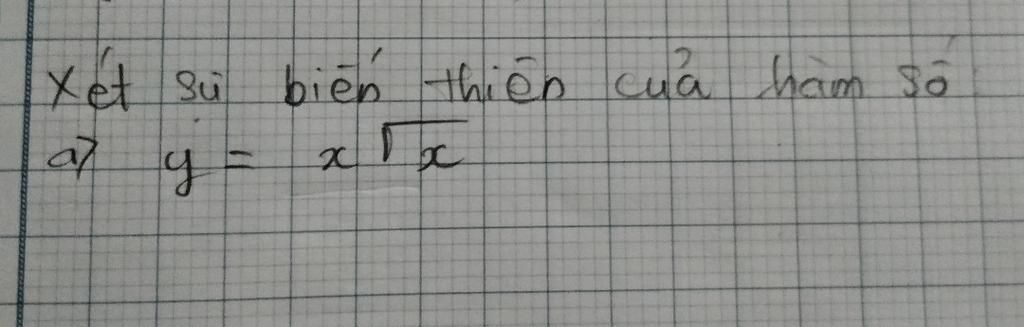 Xét sự biến thiên của hàm số
a) y = x√x